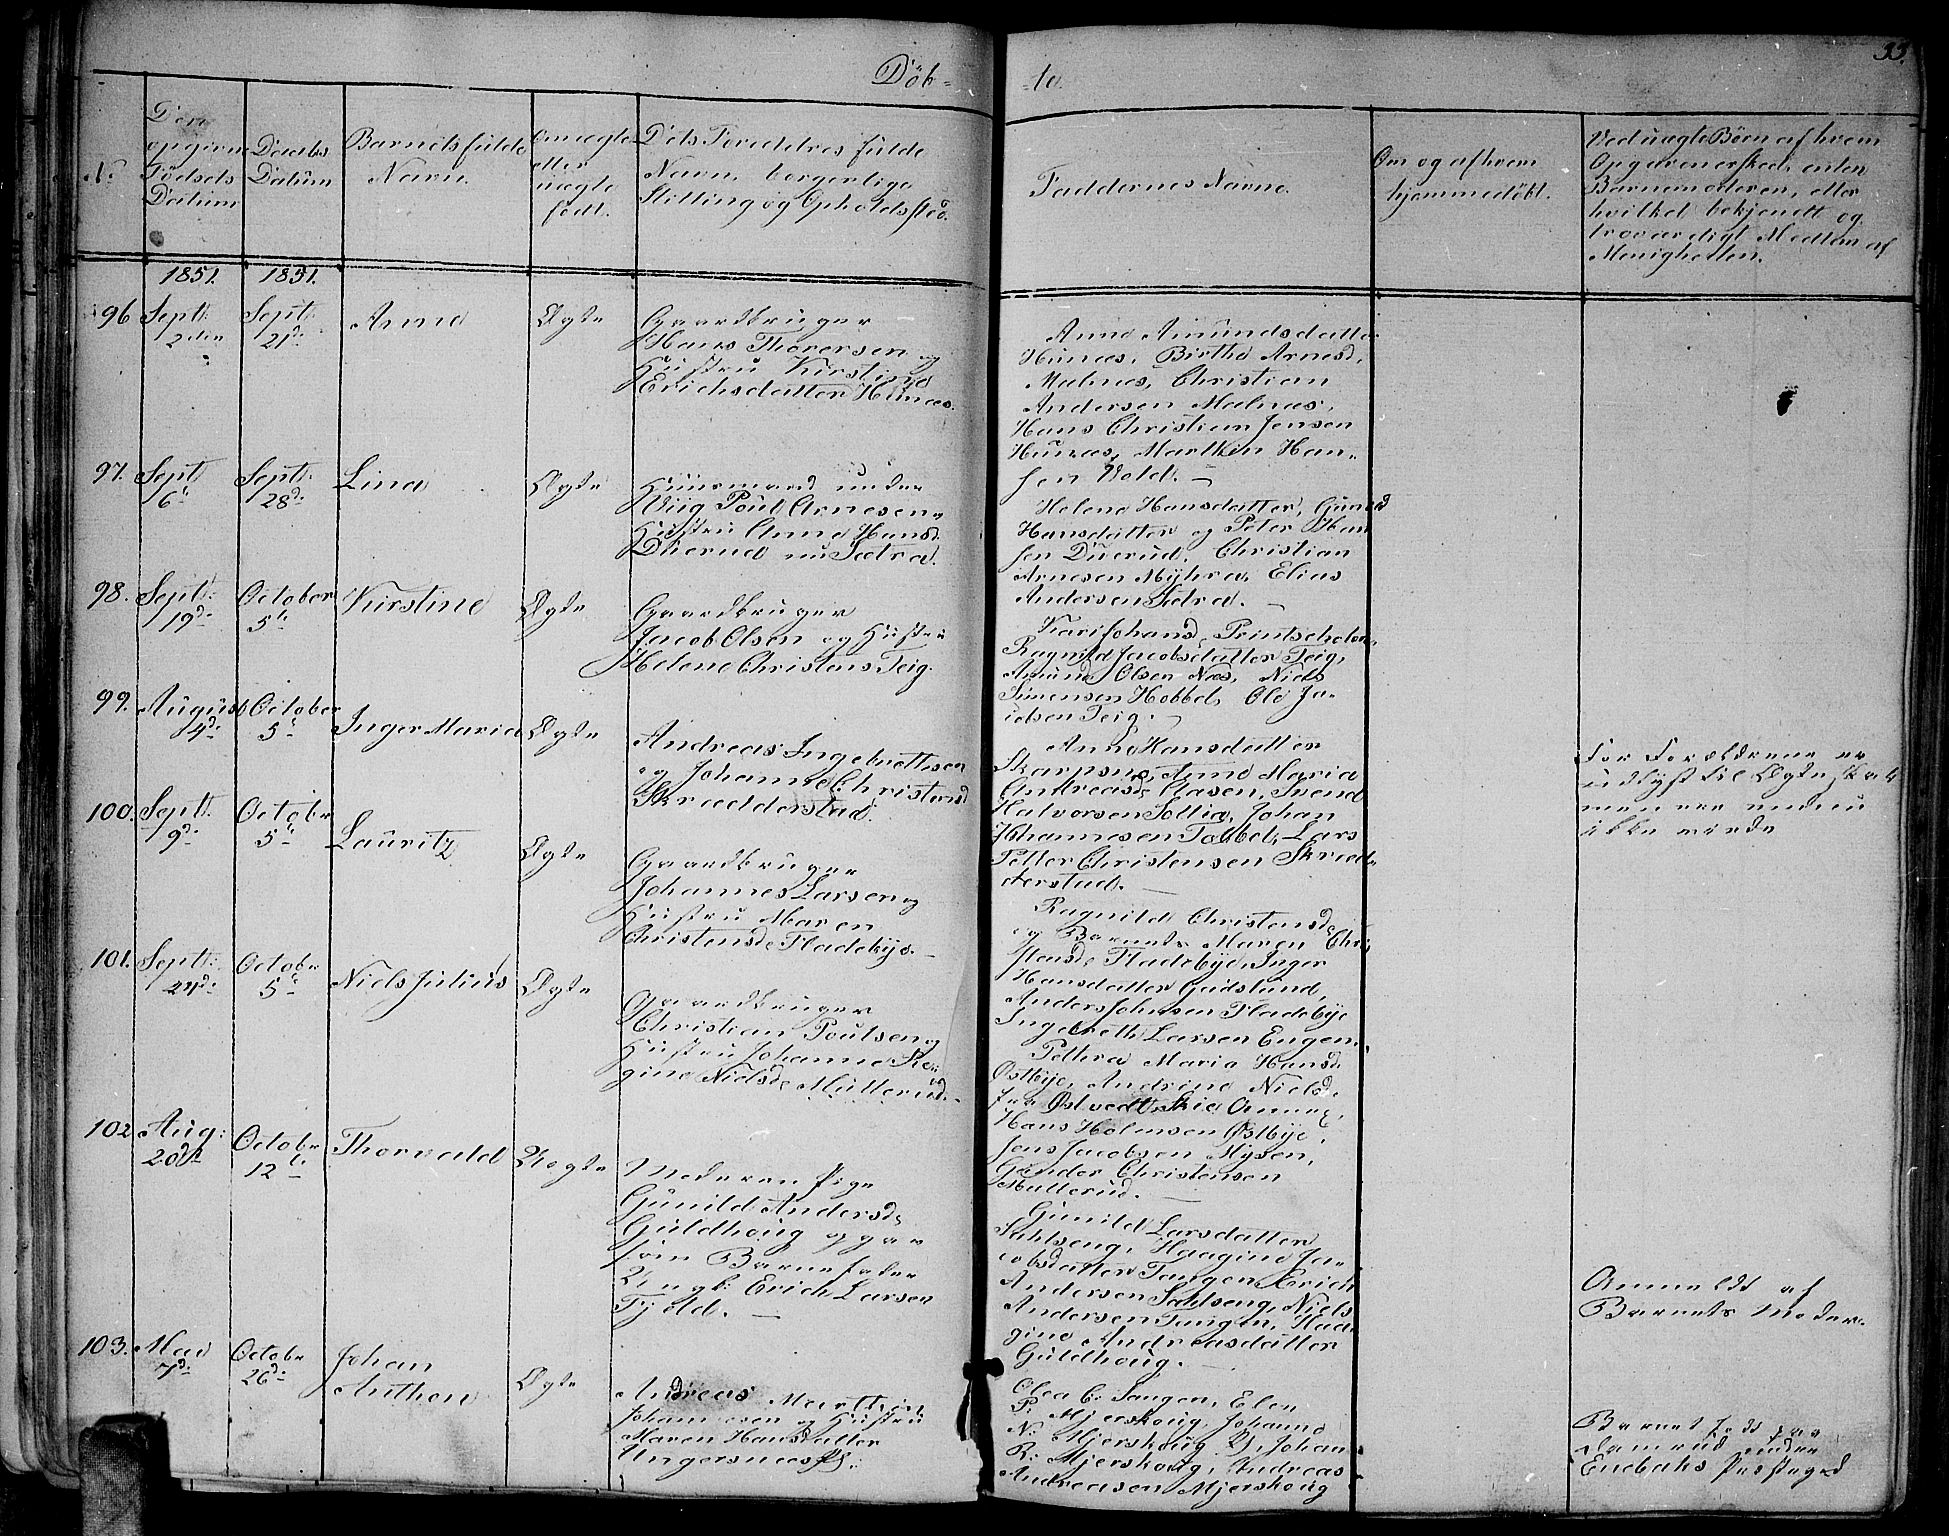 Döb-
-te
33.
No
Den
opgivne
Födsels
Datum
Daabs
Datum
Barnets fulde
Navn.
Om ægte
eller
uægte
födt.
Dets Forældres fulde
Navn, borgerlige
Stilling og Opholdssted.
Faddernes Navne.
Om og af hvem
hjemmedöbt.
Ved uægte Börn af hvem
Opgaven er skeet, enten
Barnemoderen, eller
hvilket bekjendt og
troværdigt Medlem af
Menigheden.
1851. 1851.
96 Sept:
2den
Sept:
21de
Anne
Ægte
Gaardbruger
Hans Thorersen og
Hustru Kirstine
Erichsdatter Hunæs.
Anne Amundsdatter
Hunæs, Birthe Arnesd,
Malnæs, Christian
Andersen Malnæs,
Hans Christian Jensen
Hunæs, Marthin Han-
sen Vold. -
97. Sept
6te
Sept:
28de
Lina
Ægte
Huusmand under
Viig Poul Arnesen
Hustru Anne Hansd.
Duerud nu Sætra.
Helene Hansdatter, Guned
Hansdatter og Peter Han
sen Duerud, Christian
Arnesen Myhra, Elias
Andersen Sætra. -
98. Sept:
19de
October
5te
Kirstine
Ægte
Gaardbruger
Jacob Olsen og Hustru
Helene Christens Teig.
Kari Johansd, Printseholm,
Ragnild Jacobsdatter Teig,
Amund Olsen Næs, Niels
Simensen Hobbel, Ole Ja-
cobsen Teig. -
99. August
4de
October
5te
Inger Maria
Ægte
Andreas Ingebretsen
og Johanne Christensd
Skrædderstad.
Anne Hansdatter
Skarpsno, Anne Maria
Andreasd, Aasen, Svend
Halvorsen Sollia, Johan
Johannesen Tobbel, Lars
Petter Christensen Skræd-
derstad. -
For Forældrene er
udlyst til Ægteskab
men ere endnu
ikke viede
100. Sept:
9de
Octobr
5te
Lauritz
Ægte
Gaardbruger
Johannes Larsen og
Hustru Maren
Christensd, Fladebye. -
Ragnild Christensd,
og Barnets Maren Chri
stensd, Fladebye, Inger
Hansdatter Gudslund,
Anders Johnsen Fladebye
Ingebreth Larsen Engen.
101. Sept:
24de
Octobr
5te
Niels Julius
Ægte
Gaardbruger
Christian Poulsen og
Hustru Johanne Re-
gine Nielsd, Mutterud. -
Pettra Maria Hansd,
Østbye, Andrine Nielsd,
fra Østvedt, Skie Annex,
Hans Holmsen Østbye,
Jens Jacobsen Mysen,
Gunder Christensen
Mutterud. -
102 Aug:
20de
Octobr
12te
Thorvald
Uægte
Moderen Pige
Gunild Andersd,
Guldhoug opgav
som Barnefader
Ungk: Erich Larsen
Fjeld. -
Gunild Larsdatter
Sahlseng, Haagine Ja-
cobsdatter Tangen, Erich
Andersen Sahlseng, Niels
Andersen Tangen, Haa-
gine Andreasdatter
Guldhoug. -
Anmeldt af
Barnets Moder.
103. Mai
7de
Octobr
26de
Johan
Anthon
Ægte
Andreas Marthin
Johannesen og Hustru
Maren Hansdatter
Ungersnæs Pl:
Olea C: Tangen, Elen
P: Mjerskoug, Johanne
N: Mjerskoug, Johan
R: Mjerskoug, Andreas
Andreasen Mjerskoug
Barnet födt paa
Damrud under
Enebaks Præstegjeld